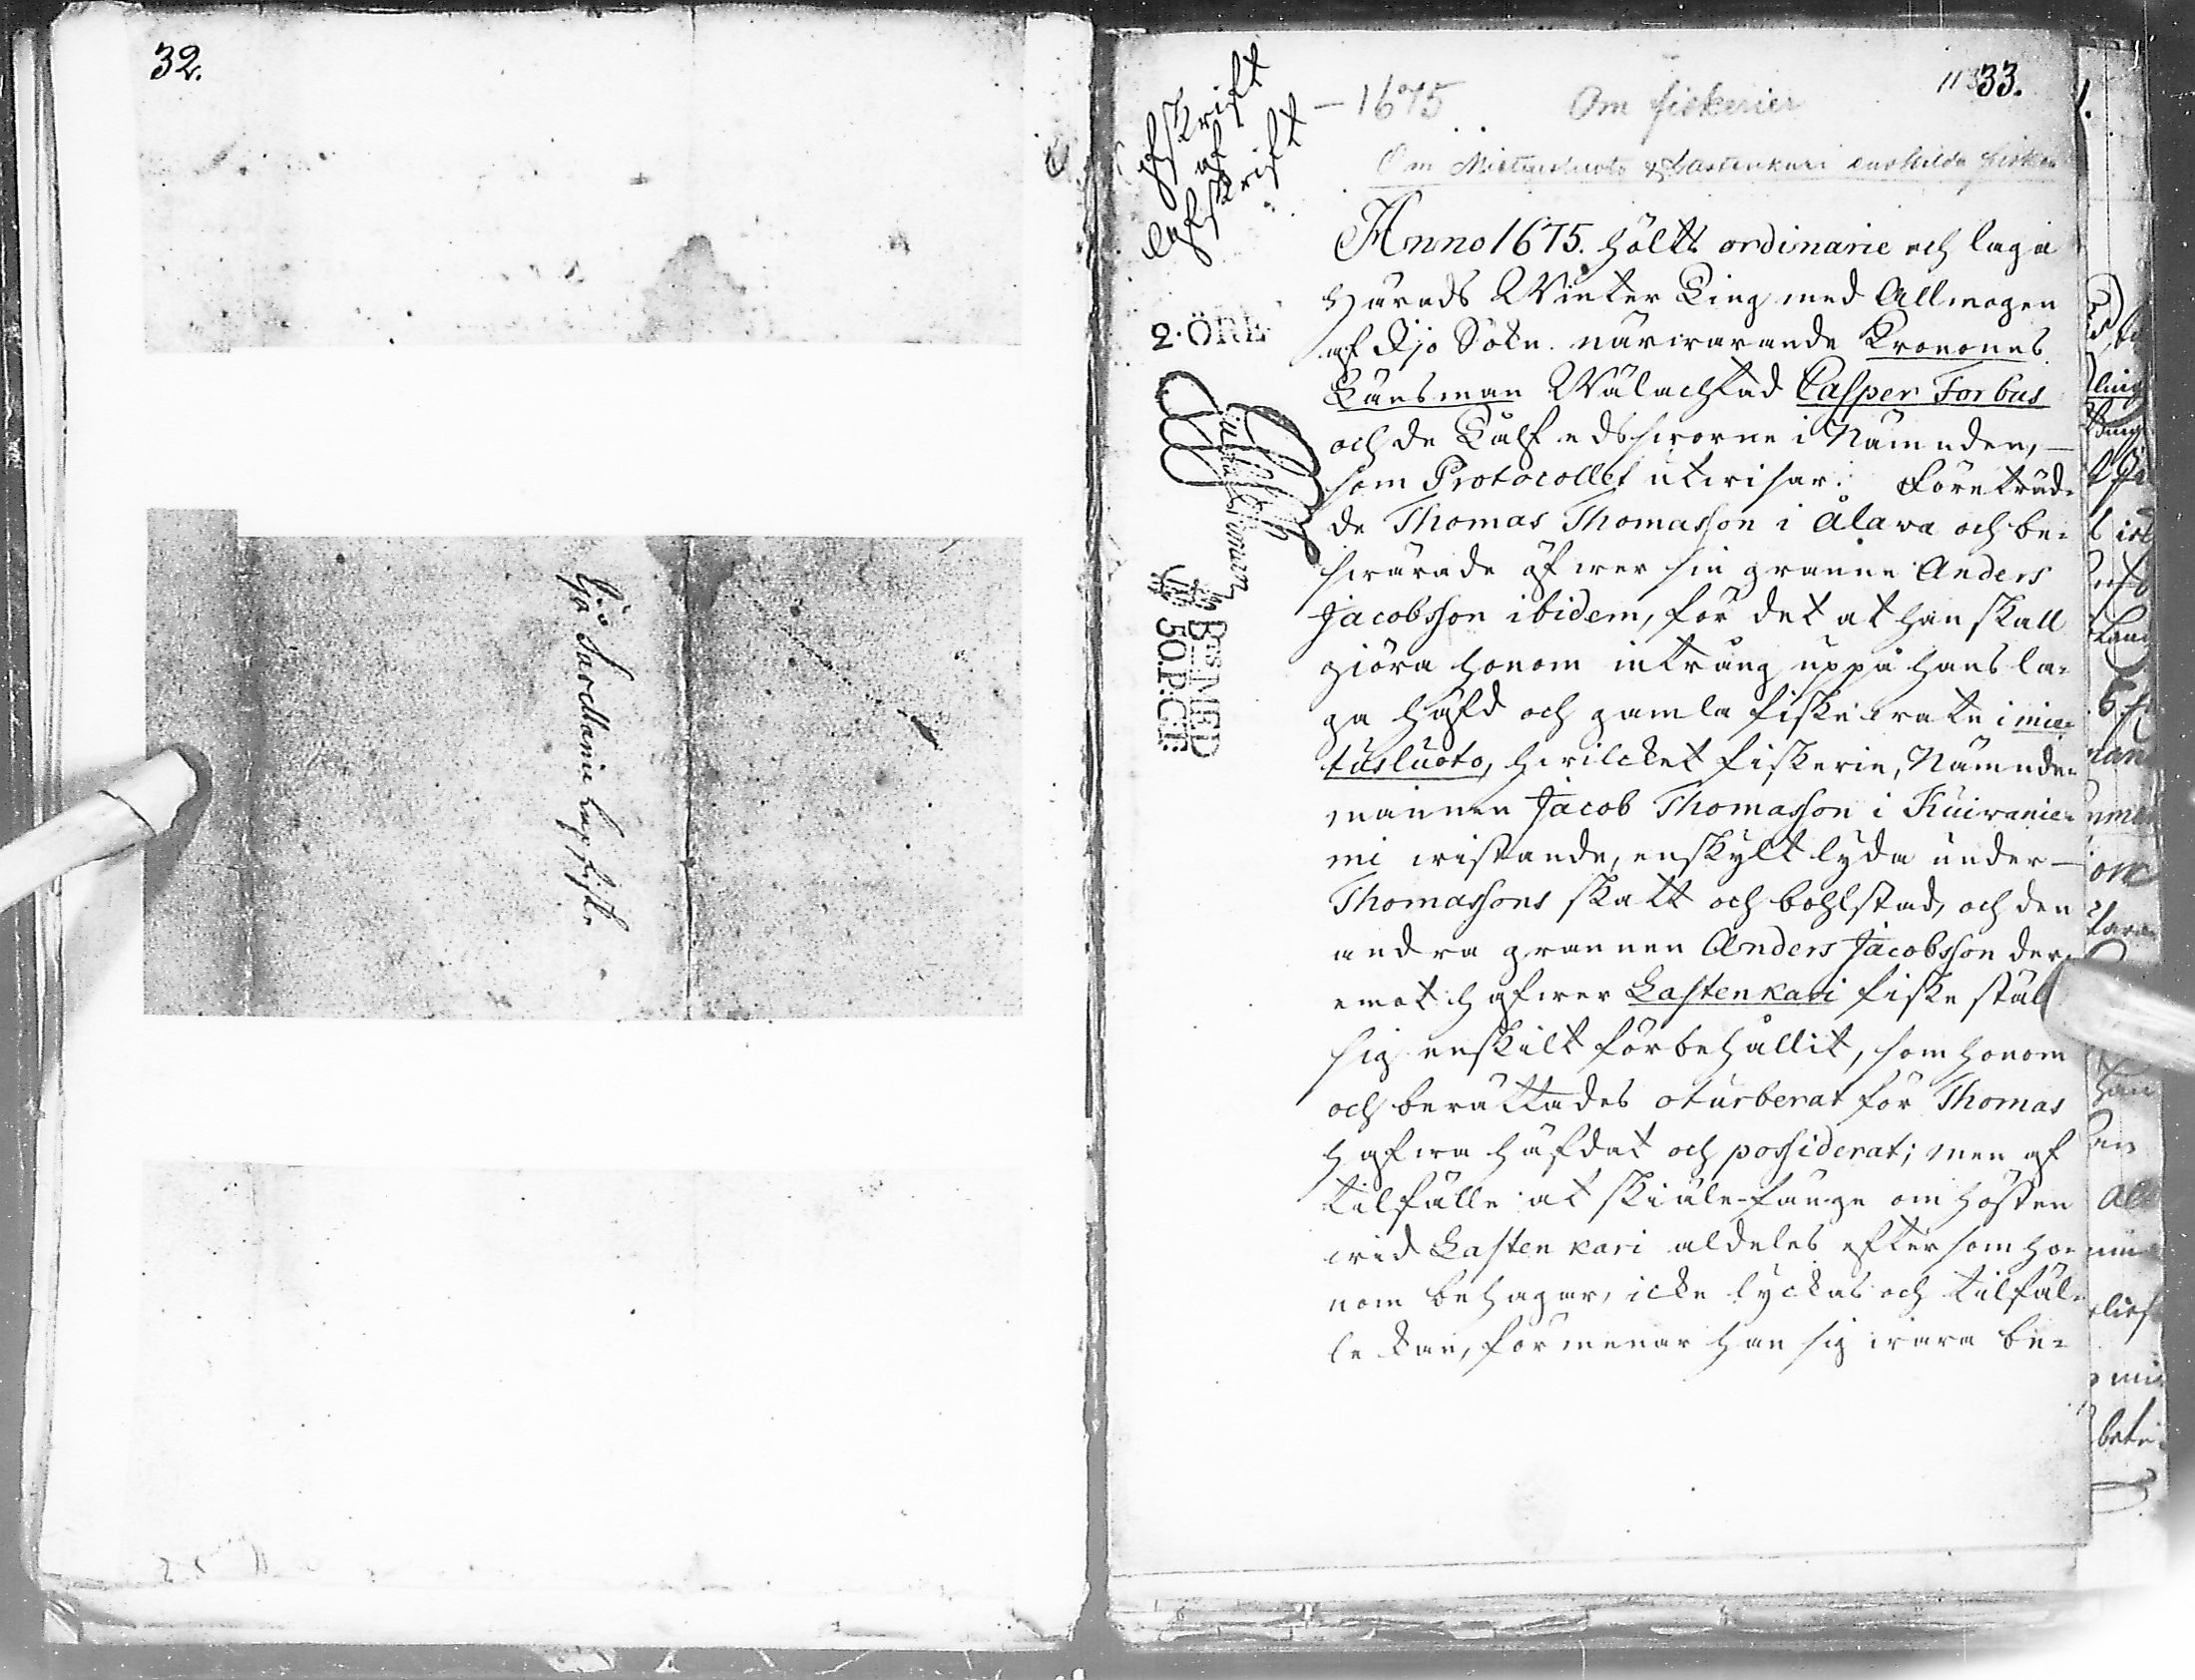 32.
Ijo Sardlanin laxfiske
33.
113
1675 Om fiskerier
Om Mietusluoto & Lastenkari enskilda fisken
afskrift
af
afskrift
2. ÖRE
S:MED
50. P: C:T:
Anno 1675. hölts ordinarie och laga
härads Winter Ting med Allmogen
af Ijo Sokn. närwarande Kronones
Länsman Wälachtad Casper Forbus
och de Tålf edsworne i Nämnden, —
som Protocollet utwisar. Företräd-
de Thomas Thomasson i Alava och be-
swärade öfwer sin granne Anders
Jacobsson ibidem, för det at han skall
giöra honom intrång uppå hans la-
ga häfd och gamla fiske wake i mie-
tusluoto, hwilcket fiskerie, Nämnde-
mannen Jacob Thomasson i Kuivanie-
mi wistande, enskylt lyda under —
Thomassons skatt och bohlstad, och den
andra grannen Anders Jacobsson der-
emot hafwer Lastenkari fiske stäl
sig enskilt förbehållit, som honom
och berättades oturberat för Thomas
hafwa häfdat och possiderat; men af
tilfälle at skiäle-fånge om hösten
wid Lasten kari aldeles eftersom ho-
nom behagar, icke lyckas och tilfäl-
le kan, förmenar han sig wara be-